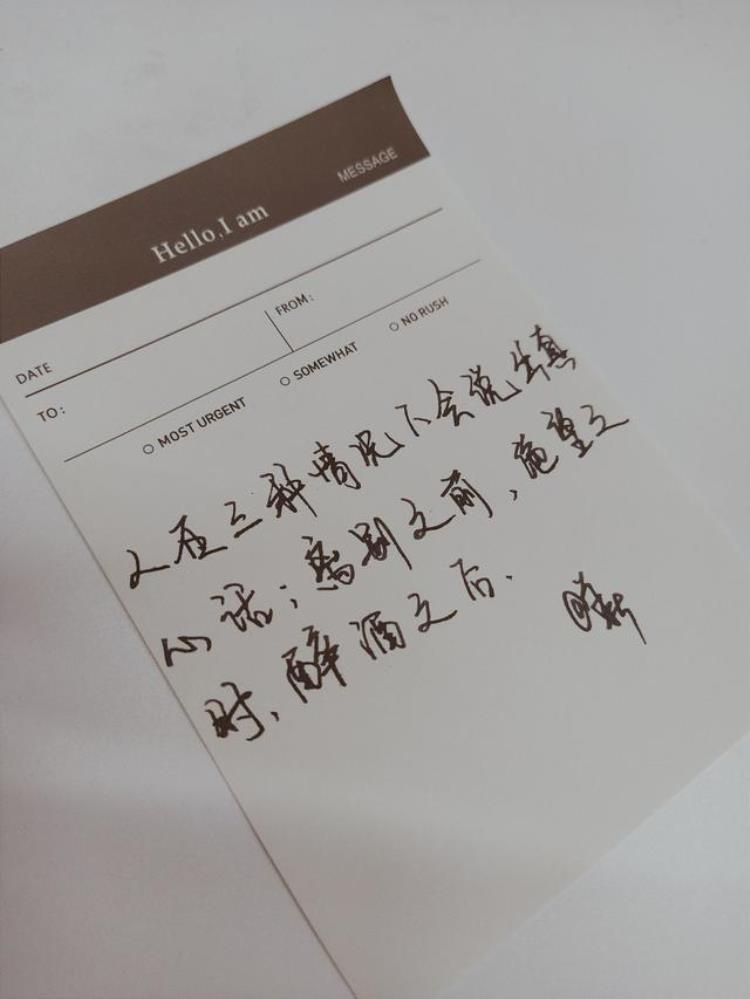 MESSAGE
Hello,I am
DATE
FROM:
TO:
MOST URGENT
SOMEWHAT
NO RUSH
人在三种情况下会说出真
心话；离别之前，绝望之
时，醉酒之后.